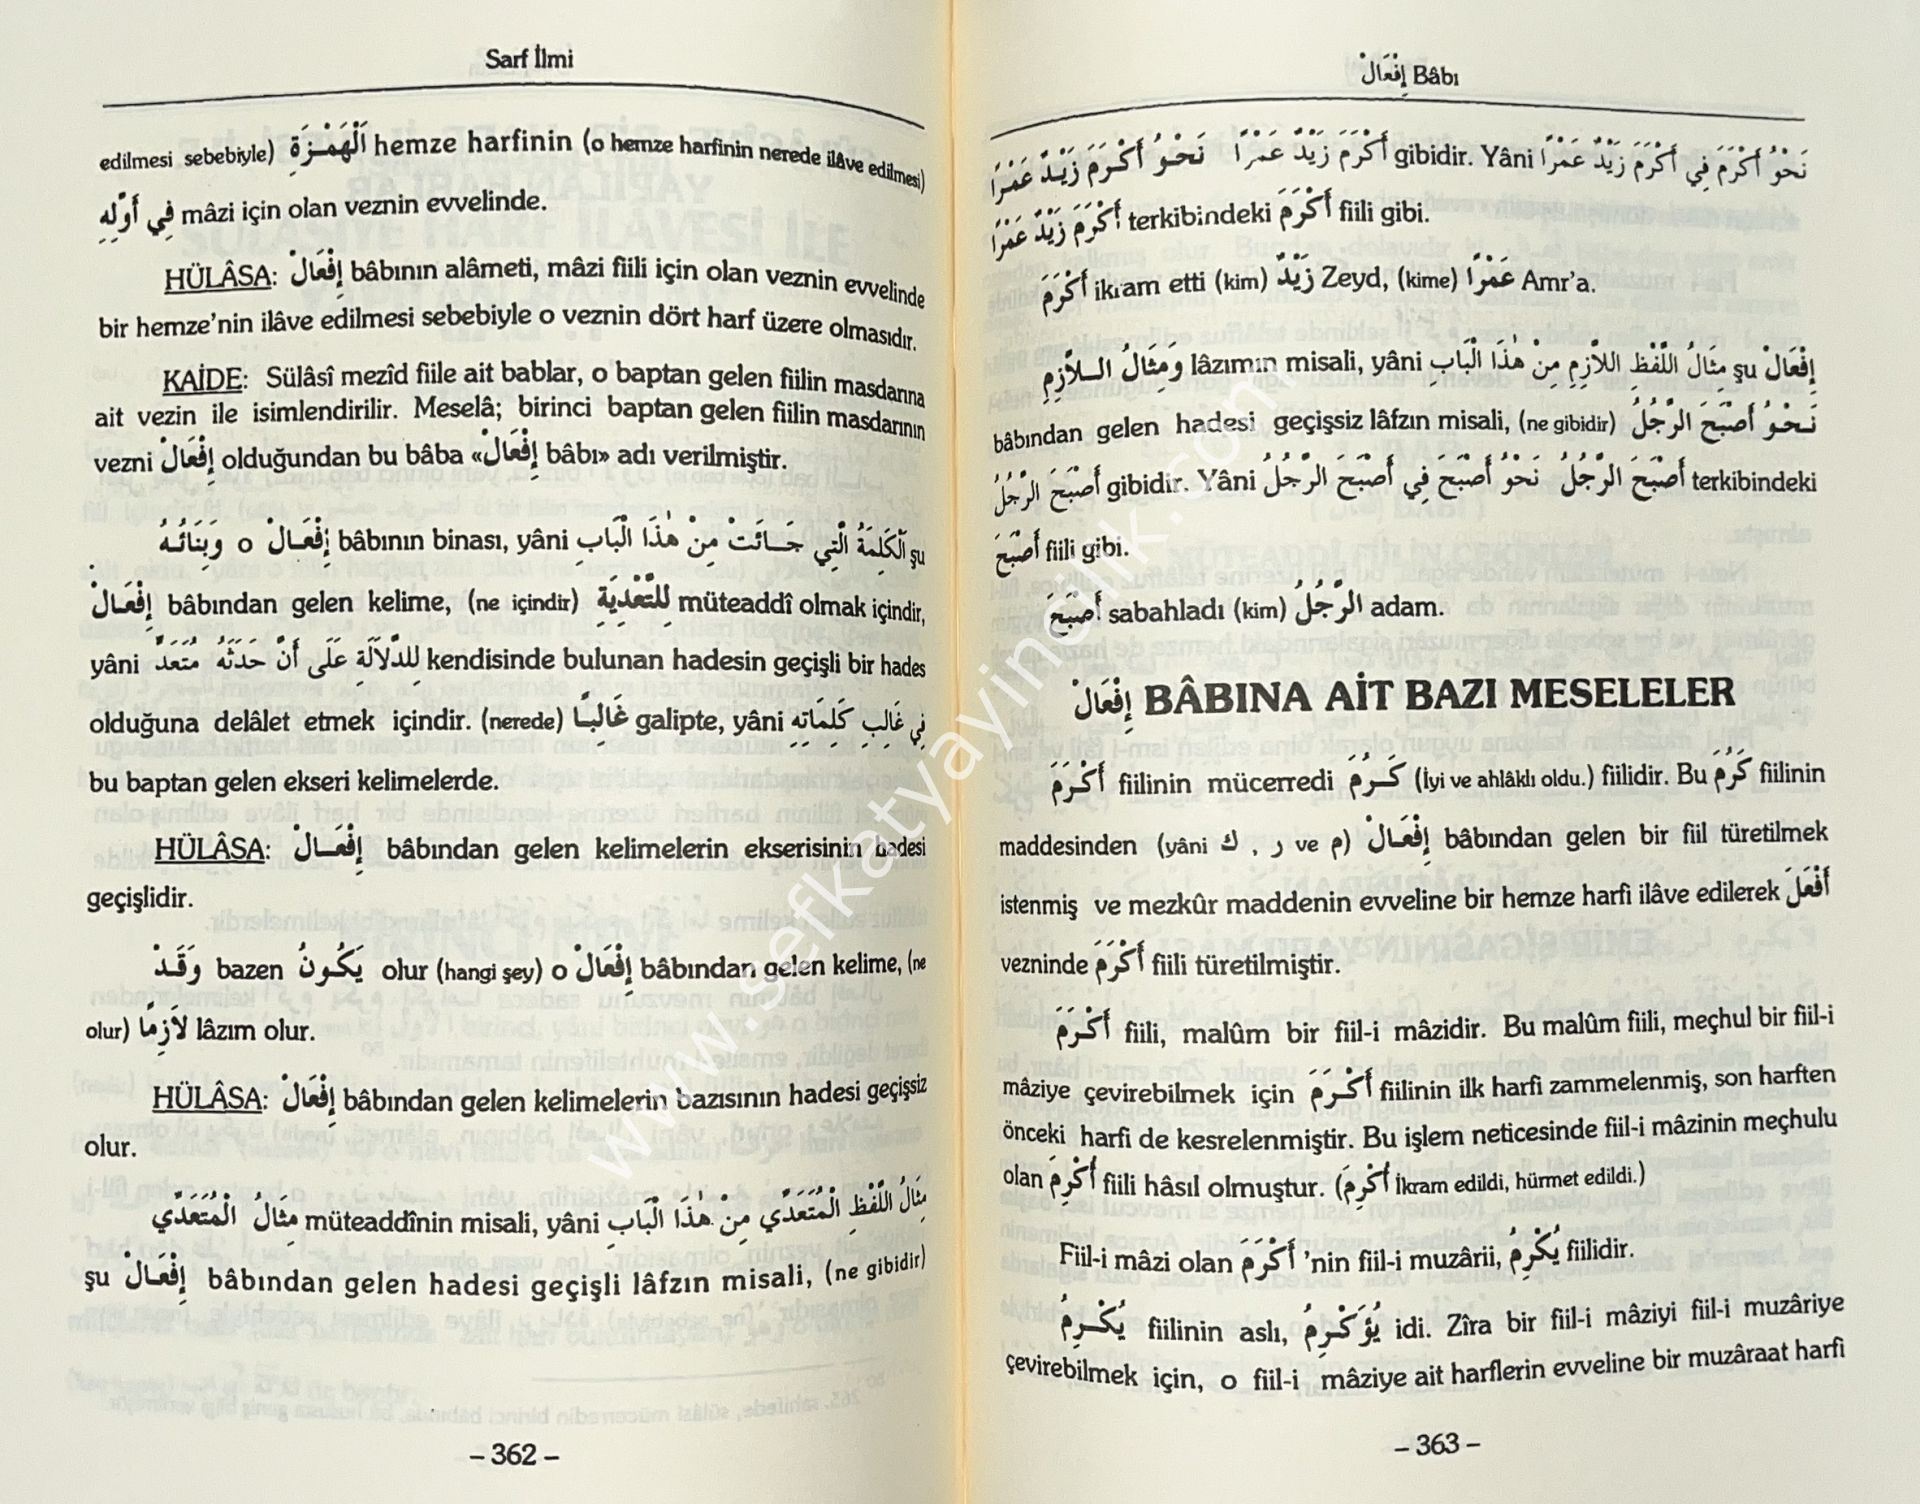 Sarf İlmi
edilmesi sebebiyle) اَلْهَمْزَةِ hemze harfinin (o hemze harfinin nerede ilâve edilmesi)
فِي أَوَّلِهِ mâzi için olan veznin evvelinde.
HÜLÂSA: إِفْعَالْ bâbının alâmeti, mâzi fiili için olan veznin evvelinde
bir hemze'nin ilâve edilmesi sebebiyle o veznin dört harf üzere olmasıdır.
KAİDE: Sülâsî mezîd fiile ait bablar, o baptan gelen fiilin masdarına
ait vezin ile isimlendirilir. Meselâ; birinci baptan gelen fiilin masdarının
vezni إِفْعَالْ olduğundan bu bâba «إِفْعَالْ bâbı» adı verilmiştir.
وَبِنَائُهُ o إِفْعَالْ bâbının binası, yâni اَلْكَلِمَةُ الَّتِي جَائَتْ مِنْ هٰذَا الْبَابِ şu
إِفْعَالْ bâbından gelen kelime, (ne içindir) لِلتَّعْدِيَةِ müteaddî olmak içindir,
yâni لِلدَّلَالَةِ عَلَى أَنَّ حَدَثَهُ مُتَعَدٍّ kendisinde bulunan hadesin geçişli bir hades
olduğuna delâlet etmek içindir. (nerede) غَالِبًا galipte, yâni فِي غَالِبِ كَلِمَاتِهِ
bu baptan gelen ekseri kelimelerde.
HÜLÂSA: إِفْعَالْ bâbından gelen kelimelerin ekserisinin hadesi
geçişlidir.
وَقَدْ bazen يَكُونُ olur (hangi şey) o إِفْعَالْ bâbından gelen kelime, (ne
olur) لَازِمًا lâzım olur.
HÜLÂSA: إِفْعَالْ bâbından gelen kelimelerin bazısının hadesi geçişsiz
olur.
مِثَالُ الْمُتَعَدِّي müteaddînin misali, yâni مِثَالُ اللَّفْظِ الْمُتَعَدِّي مِنْ هٰذَا الْبَابِ
şu إِفْعَالْ bâbından gelen hadesi geçişli lâfzın misali, (ne gibidir)
– 362 –
إِفْعَالْ Bâbı
نَحْوُ أَكْرَمَ زَيْدٌ عَمْرًا أَكْرَمَ زَيْدٌ عَمْرًا gibidir. Yâni نَحْوُ أَكْرَمَ فِي أَكْرَمَ زَيْدٌ عَمْرًا
أَكْرَمَ زَيْدٌ عَمْرًا terkibindeki أَكْرَمَ fiili gibi.
أَكْرَمَ ikram etti (kim) زَيْدٌ Zeyd, (kime) عَمْرًا Amr'a.
وَمِثَالُ اللَّازِمِ lâzımın misali, yâni مِثَالُ اللَّفْظِ اللَّازِمِ مِنْ هٰذَا الْبَابِ şu إِفْعَالْ
bâbından gelen hadesi geçişsiz lâfzın misali, (ne gibidir) نَحْوُ أَصْبَحَ الرَّجُلُ
أَصْبَحَ الرَّجُلُ gibidir. Yâni نَحْوُ أَصْبَحَ فِي أَصْبَحَ الرَّجُلُ أَصْبَحَ الرَّجُلُ terkibindeki
أَصْبَحَ fiili gibi.
أَصْبَحَ sabahladı (kim) الرَّجُلُ adam.
إِفْعَالْ BÂBINA AİT BAZI MESELELER
أَكْرَمَ fiilinin mücerredi كَرُمَ (İyi ve ahlâklı oldu.) fiilidir. Bu كَرُمَ fiilinin
maddesinden (yâni ك , ر ve م) إِفْعَالْ bâbından gelen bir fiil türetilmek
istenmiş ve mezkûr maddenin evveline bir hemze harfi ilâve edilerek أَفْعَلَ
vezninde أَكْرَمَ fiili türetilmiştir.
أَكْرَمَ fiili, malûm bir fiil-i mâzidir. Bu malûm fiili, meçhul bir fiil-i
mâziye çevirebilmek için أَكْرَمَ fiilinin ilk harfi zammelenmiş, son harften
önceki harfi de kesrelenmiştir. Bu işlem neticesinde fiil-i mâzinin meçhulu
olan أُكْرِمَ fiili hâsıl olmuştur. (أُكْرِمَ İkram edildi, hürmet edildi.)
Fiil-i mâzi olan أَكْرَمَ 'nin fiil-i muzârii, يُكْرِمُ fiilidir.
يُكْرِمُ fiilinin aslı, يُؤَكْرِمُ idi. Zîra bir fiil-i mâziyi fiil-i muzâriye
çevirebilmek için, o fiil-i mâziye ait harflerin evveline bir muzâraat harfi
– 363 –
www.sefkatyayincilik.com